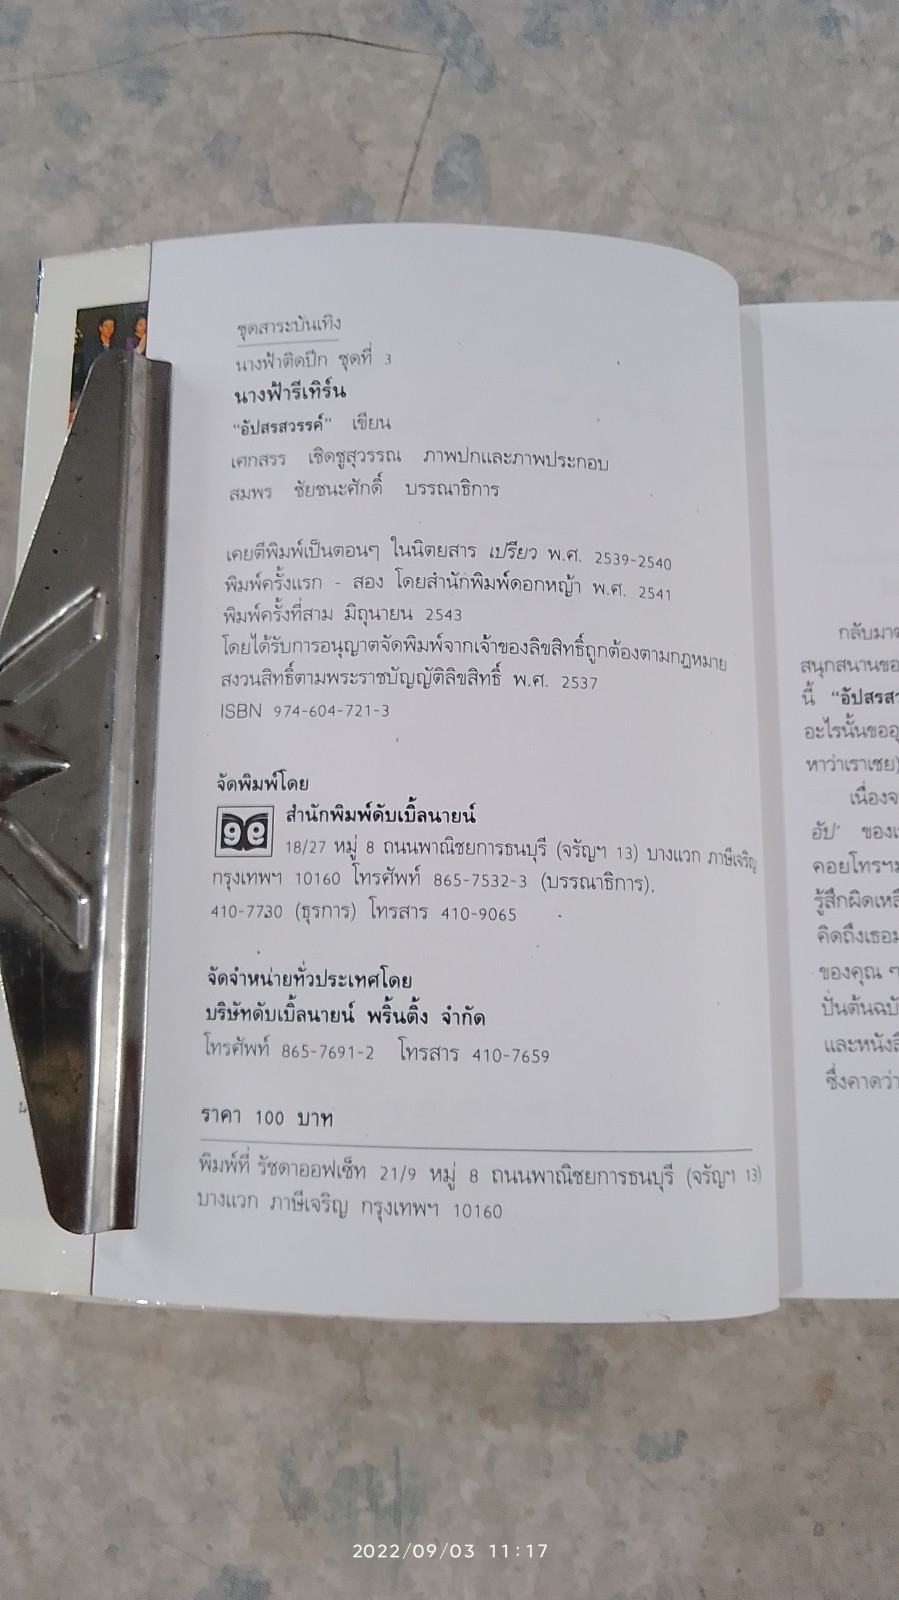 ชุดสาระบันเทิง
นางฟ้าติดปีก ชุดที่ 3
นางฟ้ารีเทิร์น
"อัปสรสวรรค์" เขียน
เศกสรร เชิดชูสุวรรณ ภาพปกและภาพประกอบ
สมพร ชัยชนะศักดิ์ บรรณาธิการ
เคยตีพิมพ์เป็นตอนๆ ในนิตยสาร เปรียว พ.ศ. 2539-2540
พิมพ์ครั้งแรก - สอง โดยสำนักพิมพ์ดอกหญ้า พ.ศ. 2541
พิมพ์ครั้งที่สาม มิถุนายน 2543
โดยได้รับการอนุญาตจัดพิมพ์จากเจ้าของลิขสิทธิ์ถูกต้องตามกฎหมาย
สงวนสิทธิ์ตามพระราชบัญญัติลิขสิทธิ์ พ.ศ. 2537
ISBN 974-604-721-3
จัดพิมพ์โดย
สำนักพิมพ์ดับเบิ้ลนายน์
18/27 หมู่ 8 ถนนพาณิชยการธนบุรี (จรัญฯ 13) บางแวก ภาษีเจริญ
กรุงเทพฯ 10160 โทรศัพท์ 865-7532-3 (บรรณาธิการ),
410-7730 (ธุรการ) โทรสาร 410-9065
จัดจำหน่ายทั่วประเทศโดย
บริษัทดับเบิ้ลนายน์ พริ้นติ้ง จำกัด
โทรศัพท์ 865-7691-2 โทรสาร 410-7659
ราคา 100 บาท
พิมพ์ที่ รัชดาออฟเซ็ท 21/9 หมู่ 8 ถนนพาณิชยการธนบุรี (จรัญฯ 13)
บางแวก ภาษีเจริญ กรุงเทพฯ 10160
กลับมา
สนุกสนานขอ
นี้ "อัปสรส
อะไรนั้นขออ
หาว่าเราเชย)
เนื่องจ
อัป' ของเ
คอยโทรฯม
รู้สึกผิดเหลื
คิดถึงเธอม
ของคุณ ๆ
ปั่นต้นฉบั
และหนังสื
ซึ่งคาดว่า
2022/09/03 11:17